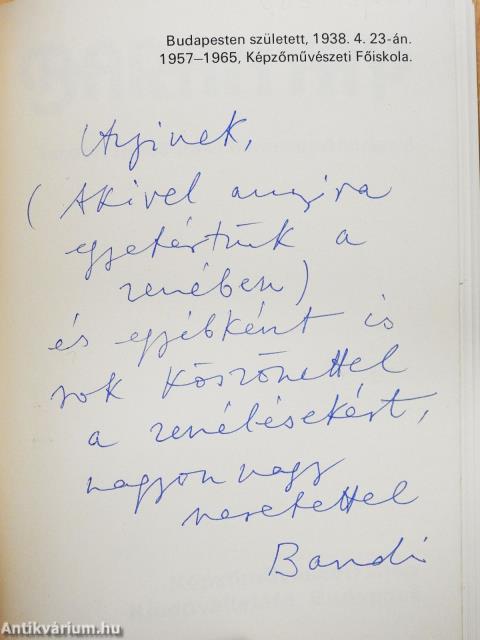 Budapesten született, 1938. 4. 23-án.
1957–1965, Képzőművészeti Főiskola.
(Akivel annyira
egyetértünk a
zenében)
és egyébként is
sok köszönettel
a zenélésekért,
nagyon nagy
szeretettel
Bandi
Antikvárium.hu